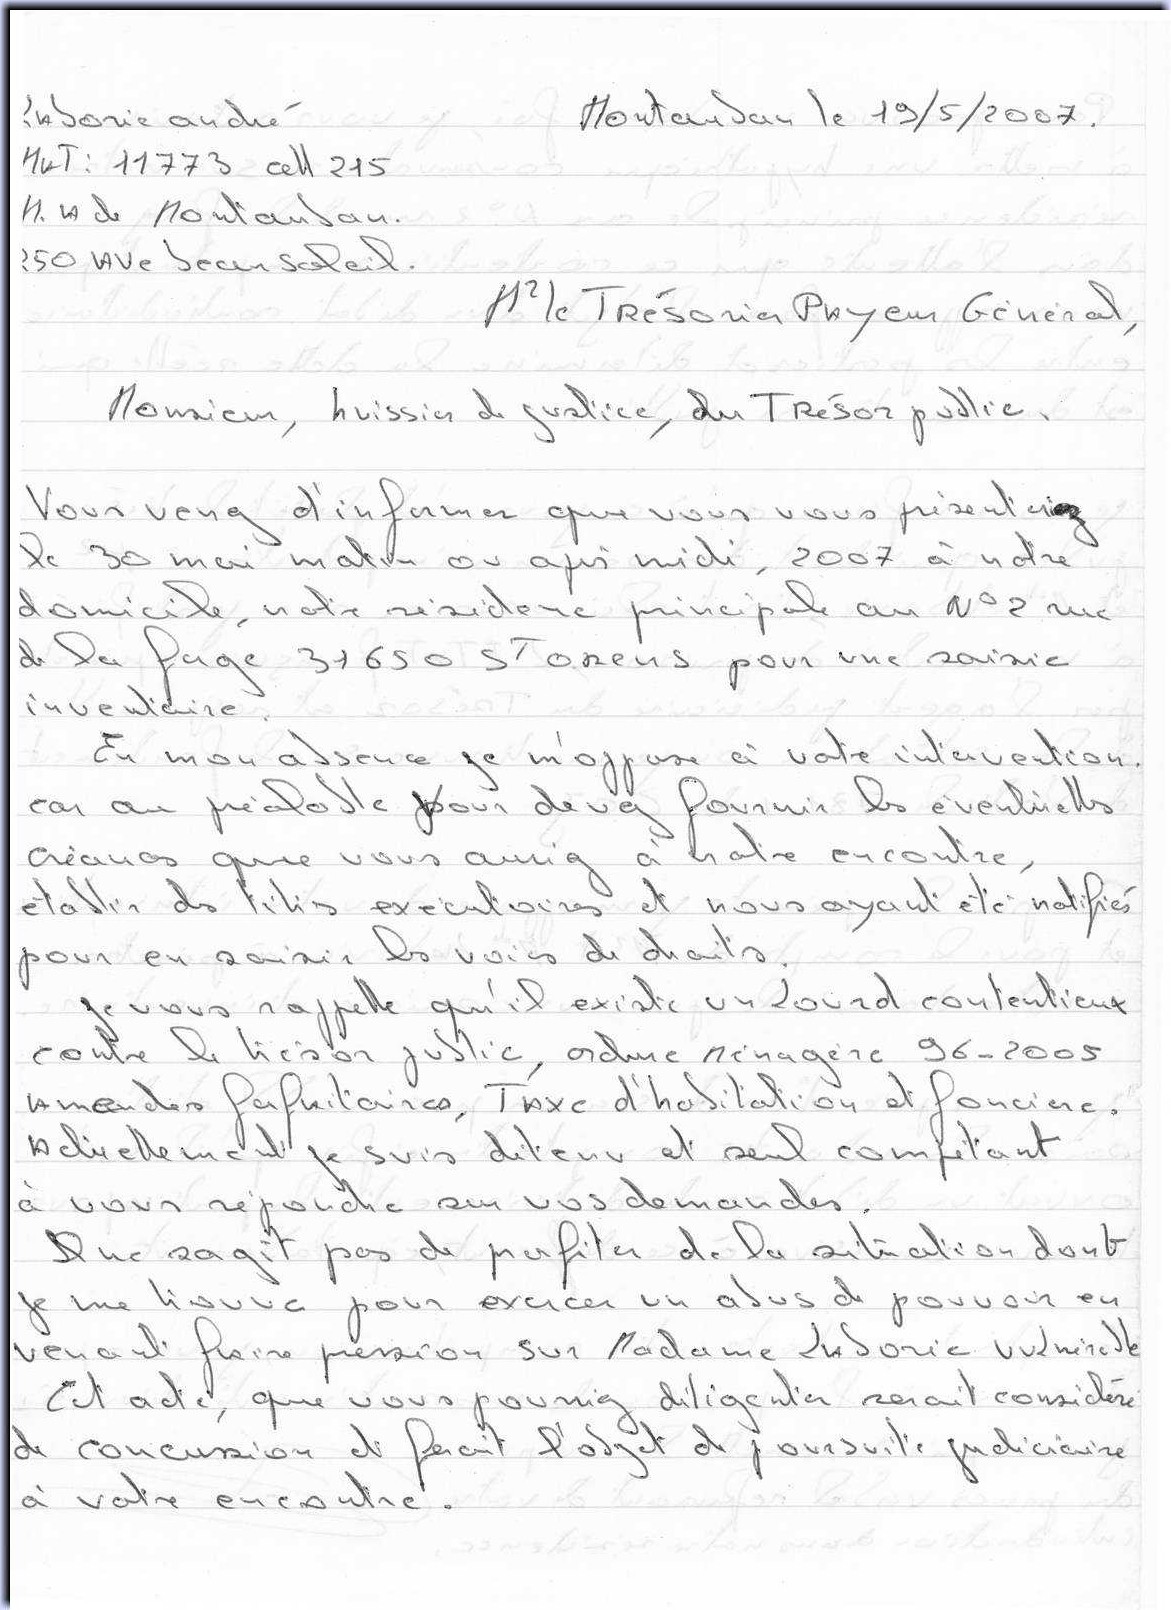 Laborie andré Montauban le 19/5/2007.
MAT: 11773 cell 215
M.A de Montauban.
250 AVe beau soleil.
Mr le TRÉSorier PAyeur Général,
Monsieur, huissier de justice, du TRéSor public.
Vous venez d'informer que vous vous présenteriez
le 30 mai matin ou après midi, 2007 à notre
domicile, notre résidence principale au N° 2 rue
de la forge 31650 ST ORENS pour une saisie
inventaire.
En mon absence je m'oppose à votre intervention.
car au préalable vous devez fournir les éventuelles
créances que vous auriez à notre encontre,
établir des titres exécutoires et nous ayant été notifiés
pour en saisir les voies de droits.
Je vous rappelle qu'il existe un lourd contentieux
contre le trésor public, ordure ménagère 96-2005
Amendes forfaitaires, TAxe d'habitation et foncière.
Actuellement je suis détenu et seul compétant
à vous répondre sur vos demandes.
Il ne sagit pas de profiter de la situation dont
je me trouve pour exercer un abus de pouvoir en
venant faire pression sur Madame Laborie vulnérable
Cet acte, que vous pourriez diligenter serait considéré
de concussion et ferait l'objet de poursuite judiciaire
à votre encontre.